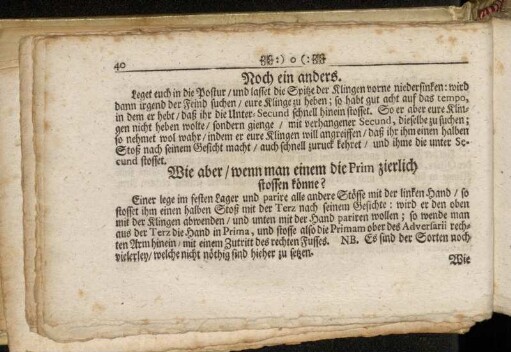 40
:) o (:
Noch ein anders.
Leget euch in die Postur / und lasset die Spitze der Klingen vorne niedersinken: wird
dann irgend der Feind suchen / eure Klinge zu heben; so habt gut acht auf das tempo,
in dem er hebt / daß ihr die Unter-Secund schnell hinein stosset. So er aber eure Klin-
gen nicht heben wolte / sondern gienge / mit verhangener Secund, dieselbe zu suchen;
so nehmet wol wahr / indem er eure Klingen will angreiffen / daß ihr ihm einen halben
Stoß nach seinem Gesicht macht / auch schnell zuruck kehret / und ihme die unter Se-
cund stosset.
Wie aber / wenn man einem die Prim zierlich
stossen könne?
Einer lege im festen Lager und parire alle andere Stösse mit der linken Hand / so
stosset ihm einen halben Stoß mit der Terz nach seinem Gesichte: wird er den oben
mit der Klingen abwenden / und unten mit der Hand pariren wollen; so wende man
aus der Terz die Hand in Prima, und stosse also die Primam ober des Adversarii rech-
ten Arm hinein / mit einem Zutritt des rechten Fusses. NB. Es sind der Sorten noch
vielerley / welche nicht nöthig sind hieher zu setzen.
Wie